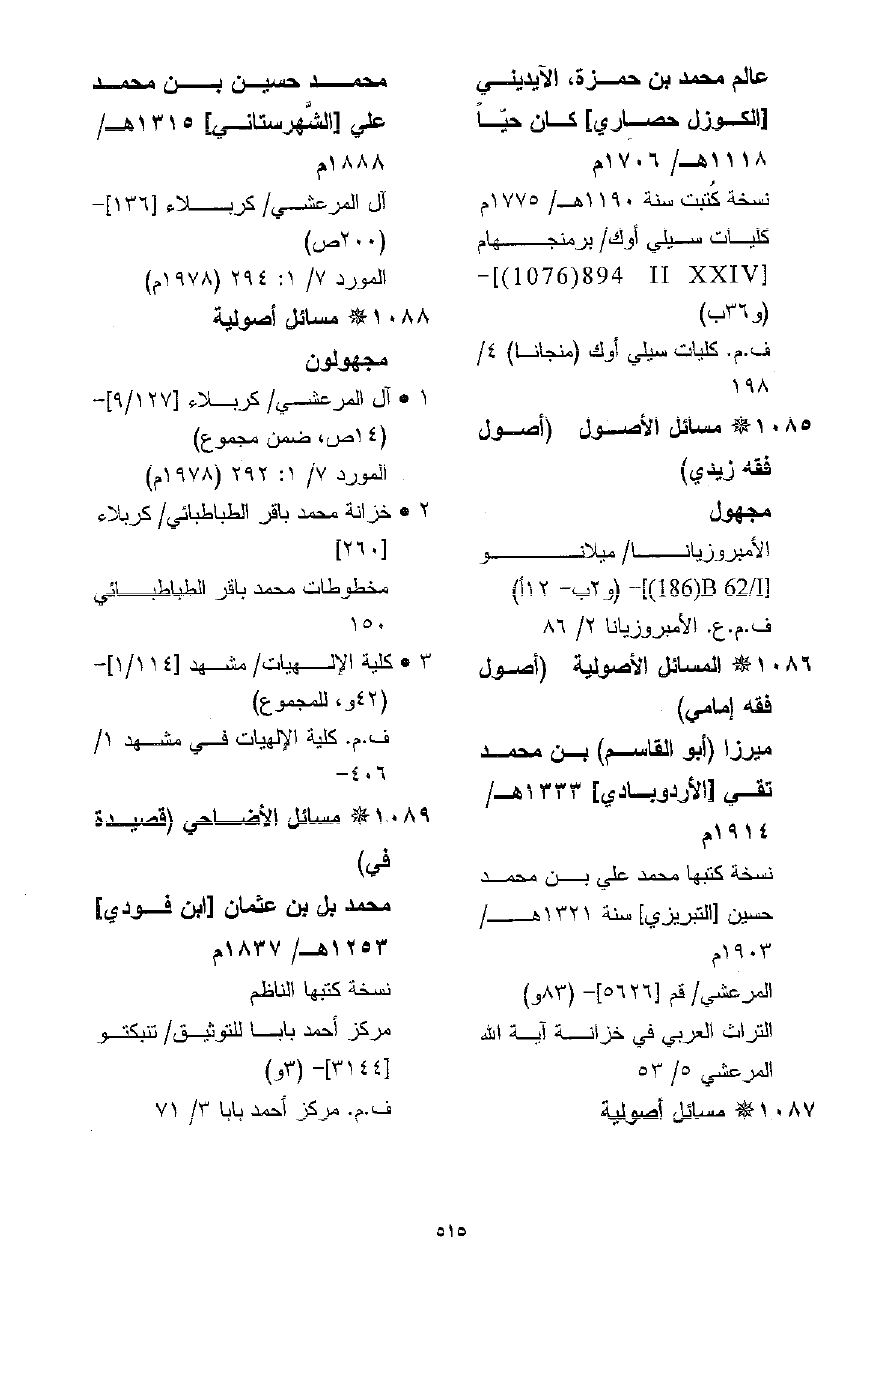 عالم محمد بن حمزة، الآيديني
[الكوزل حصاري] كان حيّاً
١١١٨هـ/ ١٧٠٦م
نسخة كُتبت سنة ١١٩٠هـ/ ١٧٧٥م
كليات سيلي أوك/ برمنجهام
[1076)894 II XXIV)]-
(و٣٦ب)
ف.م. كليات سيلي أوك (منجانا) ٤/
١٩٨
١٠٨٥ ❊ مسائل الأصول (أصول
فقه زيدي)
مجهول
الأمبروزيانا/ ميلانو
[186)B 62/I)]- (و٢ب- ١٢أ)
ف.م.ع. الأمبروزيانا ٢/ ٨٦
١٠٨٦ ❊ المسائل الأصولية (أصول
فقه إمامي)
ميرزا (أبو القاسم) بن محمد
تقي [الأردوبادي] ١٣٣٣هـ/
١٩١٤م
نسخة كتبها محمد علي بن محمد
حسين [التبريزي] سنة ١٣٢١هـ/
١٩٠٣م
المرعشي/ قم [٥٦٢٦]- (٨٣و)
التراث العربي في خزانة آية الله
المرعشي ٥/ ٥٣
١٠٨٧ ❊ مسائل أصولية
محمد حسين بن محمد
علي [الشَّهرستاني] ١٣١٥هـ/
١٨٨٨م
آل المرعشي/ كربلاء [١٣٦]-
(٢٠٠ص)
المورد ٧/ ١: ٢٩٤ (١٩٧٨م)
١٠٨٨ ❊ مسائل أصولية
مجهولون
١ • آل المرعشي/ كربلاء [٩/١٢٧]-
(١٤ص، ضمن مجموع)
المورد ٧/ ١: ٢٩٢ (١٩٧٨م)
٢ • خزانة محمد باقر الطباطبائي/ كربلاء
[٢٦٠]
مخطوطات محمد باقر الطباطبائي
١٥٠
٣ • كلية الإلهيات/ مشهد [١/١١٤]-
(٤٢و، للمجموع)
ف.م. كلية الإلهيات في مشهد ١/
٤٠٦-
١٠٨٩ ❊ مسائل الأضاحي (قصيدة
في)
محمد بل بن عثمان [ابن فودي]
١٢٥٣هـ/ ١٨٣٧م
نسخة كتبها الناظم
مركز أحمد بابا للتوثيق/ تنبكتو
[٣١٤٤]- (٣و)
ف.م. مركز أحمد بابا ٣/ ٧١
٥١٥